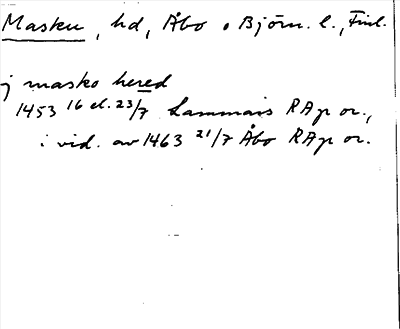 Masku, hd, Åbo o Björn. l., Finl.
j masko hered
1453 16 el. 23/7 Lammais RAp or.,
i vid. av 1463 21/7 Åbo RAp or.